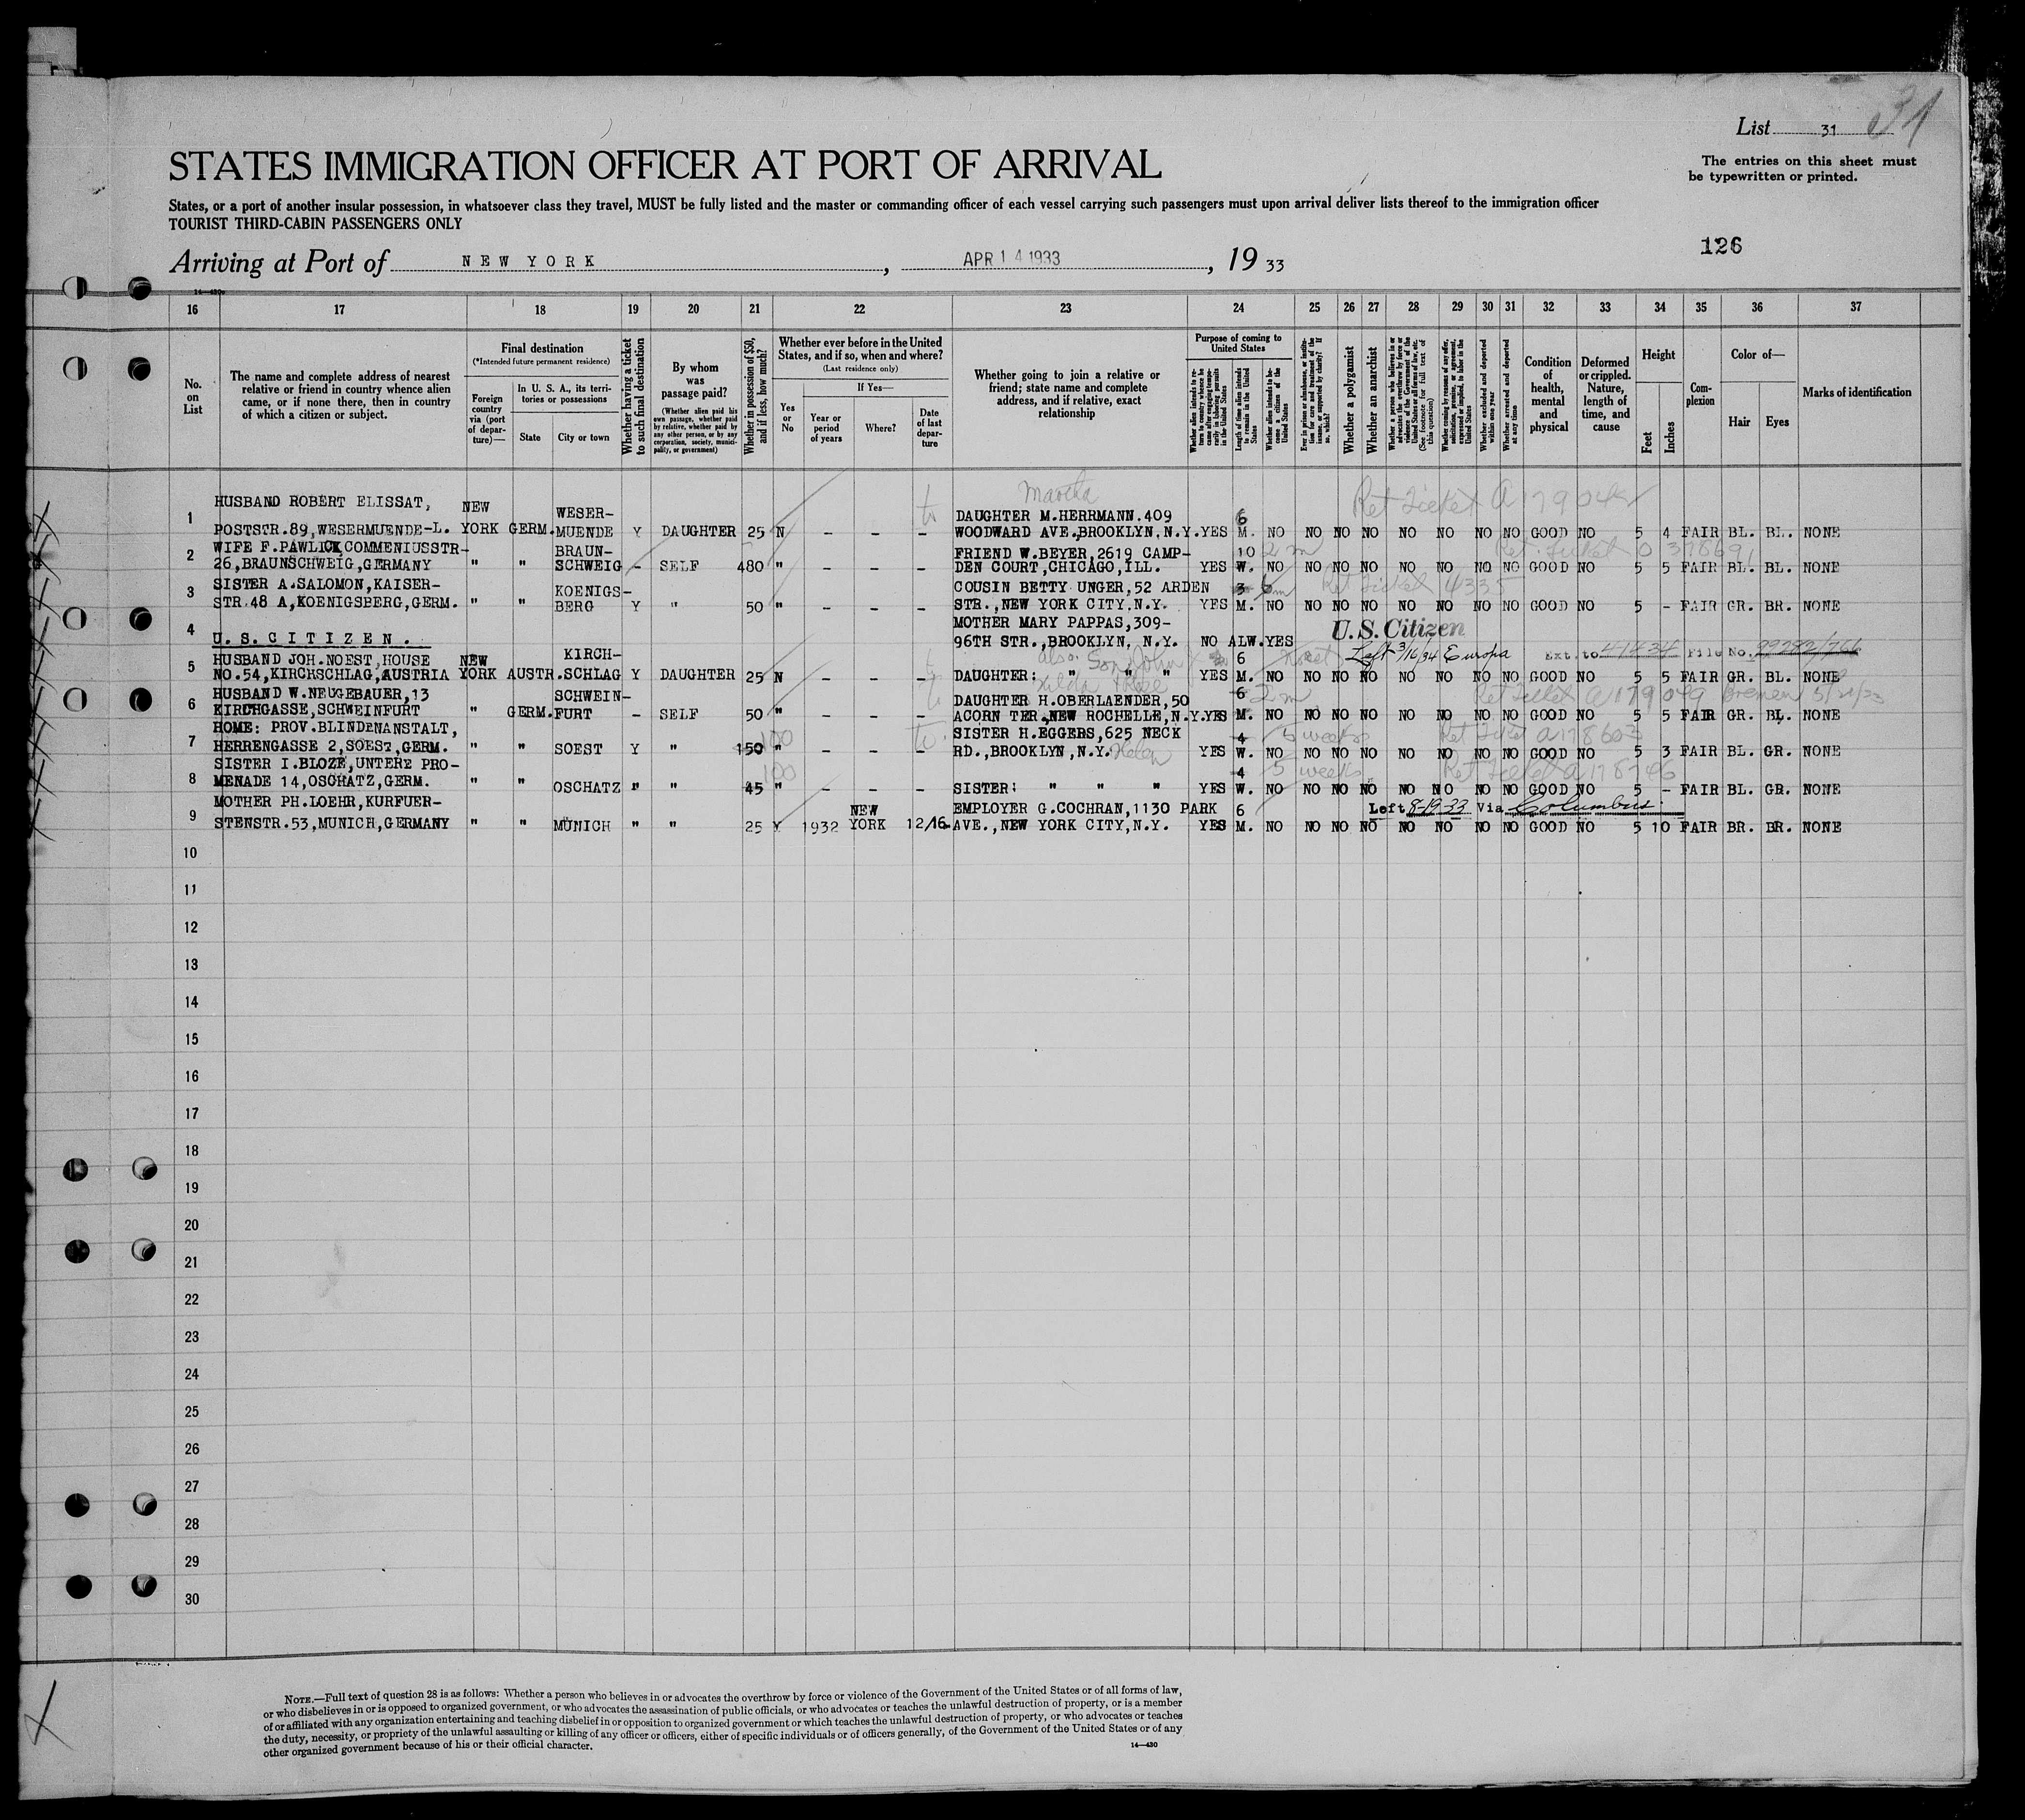 List 31 31
STATES IMMIGRATION OFFICER AT PORT OF ARRIVAL
The entries on this sheet must
be typewritten or printed.
States, or a port of another insular possession, in whatsoever class they travel, MUST be fully listed and the master or commanding officer of each vessel carrying such passengers must upon arrival deliver lists thereof to the immigration officer
TOURIST THIRD-CABIN PASSENGERS ONLY
126
Arriving at Port of NEW YORK, APR 14 1933, 19 33
14—430
16 17 18 19 20 21 22 23 24 25 26 27 28 29 30 31 32 33 34 35 36 37
No. on List
The name and complete address of nearest relative or friend in country whence alien came, or if none there, then in country of which a citizen or subject.
Final destination
(*Intended future permanent residence)
Foreign country via (port of departure)—
In U. S. A., its territories or possessions
State
City or town
Whether having a ticket to such final destination
By whom was passage paid?
(Whether alien paid his own passage, whether paid by relative, whether paid by any other person, or by any corporation, society, municipality, or government)
Whether in possession of $50, and if less, how much?
Whether ever before in the United States, and if so, when and where?
(Last residence only)
Yes or No
If Yes—
Year or period of years
Where?
Date of last departure
Whether going to join a relative or friend; state name and complete address, and if relative, exact relationship
Purpose of coming to United States
Length of time alien intends to remain in the United States
Whether alien intends to become a citizen of the United States
Whether a polygamist
Whether an anarchist
(See footnote for full text of this question)
Whether excluded and deported within one year
Whether arrested and deported at any time
Condition of health, mental and physical
Deformed or crippled. Nature, length of time, and cause
Height
Feet
Inches
Complexion
Color of—
Hair
Eyes
Marks of identification
Martha
Ret Ticket A 179048
1 HUSBAND ROBERT ELISSAT, NEW WESER- DAUGHTER M.HERRMANN.409 6
POSTSTR.89,WESERMUENDE-L. YORK GERM. MUENDE Y DAUGHTER 25 N - - - WOODWARD AVE.,BROOKLYN,N.Y. YES M. NO NO NO NO NO NO NO NO GOOD NO 5 4 FAIR BL. BL. NONE
2 WIFE F.PAWLICK,COMMENIUSSTR- BRAUN- FRIEND W.BEYER,2619 CAMP- 10 2 m Ret. Ticket
26,BRAUNSCHWEIG,GERMANY " " SCHWEIG - SELF 480 " - - - DEN COURT,CHICAGO,ILL. YES W. NO NO NO NO NO NO NO NO GOOD NO 5 5 FAIR BL. BL. NONE
3 SISTER A.SALOMON,KAISER- KOENIGS- COUSIN BETTY UNGER,52 ARDEN 3 6m Ret Ticket 4335
STR.48 A,KOENIGSBERG,GERM. " " BERG Y " 50 " - - - STR.,NEW YORK CITY,N.Y. YES M. NO NO NO NO NO NO NO NO GOOD NO 5 - FAIR GR. BR. NONE
4 MOTHER MARY PAPPAS,309- U.S.Citizen
U.S.CITIZEN. 96TH STR.,BROOKLYN, N.Y. NO ALW.YES
5 HUSBAND JOH.NOEST,HOUSE NEW KIRCH- also Son John 6 Left 3/16/34 Europa Ext. to 4-14-34 File No. 99282/766
NO.54,KIRCHSCHLAG,AUSTRIA YORK AUSTR. SCHLAG Y DAUGHTER 25 N - - - DAUGHTER: " " " YES M. NO NO NO NO NO NO NO NO GOOD NO 5 5 FAIR GR. BL. NONE
6 HUSBAND W.NEUGEBAUER,13 SCHWEIN- DAUGHTER H.OBERLAENDER,50 6 2 m Ret Ticket A 179049 Bremen
KIRCHGASSE,SCHWEINFURT " GERM. FURT - SELF 50 " - - - ACORN TER.,NEW ROCHELLE,N.Y. YES M. NO NO NO NO NO NO NO NO GOOD NO 5 5 FAIR GR. BL. NONE
7 HOME: PROV.BLINDENANSTALT, 100 SISTER H.EGGERS,625 NECK 4 5 weeks Ret Ticket A 178603
HERRENGASSE 2,SOEST,GERM. " " SOEST Y " 150 " - - - RD.,BROOKLYN,N.Y. Helen YES W. NO NO NO NO NO NO NO NO GOOD NO 5 3 FAIR BL. GR. NONE
8 SISTER I.BLOZE,UNTERE PRO- 100 4 5 weeks Ret Ticket A 178746
MENADE 14,OSCHATZ,GERM. " " OSCHATZ " " 45 " - - - SISTER: " " " YES W. NO NO NO NO NO NO NO NO GOOD NO 5 - FAIR BL. GR. NONE
9 MOTHER PH.LOEHR,KURFUER- NEW EMPLOYER G.COCHRAN,1130 PARK 6 Left 8-19-33 Via Columbus
STENSTR.53,MUNICH,GERMANY " " MUNICH " " 25 Y 1932 YORK 12/16 AVE.,NEW YORK CITY,N.Y. YES M. NO NO NO NO NO NO NO NO GOOD NO 5 10 FAIR BR. BR. NONE
10
11
12
13
14
15
16
17
18
19
20
21
22
23
24
25
26
27
28
29
30
NOTE.—Full text of question 28 is as follows: Whether a person who believes in or advocates the overthrow by force or violence of the Government of the United States or of all forms of law,
or who disbelieves in or is opposed to organized government, or who advocates the assassination of public officials, or who advocates or teaches the unlawful destruction of property, or is a member
of or affiliated with any organization entertaining and teaching disbelief in or opposition to organized government or which teaches the unlawful destruction of property, or who advocates or teaches
the duty, necessity, or propriety of the unlawful assaulting or killing of any officer or officers, either of specific individuals or of officers generally, of the Government of the United States or of any
other organized government because of his or their official character.
14—430